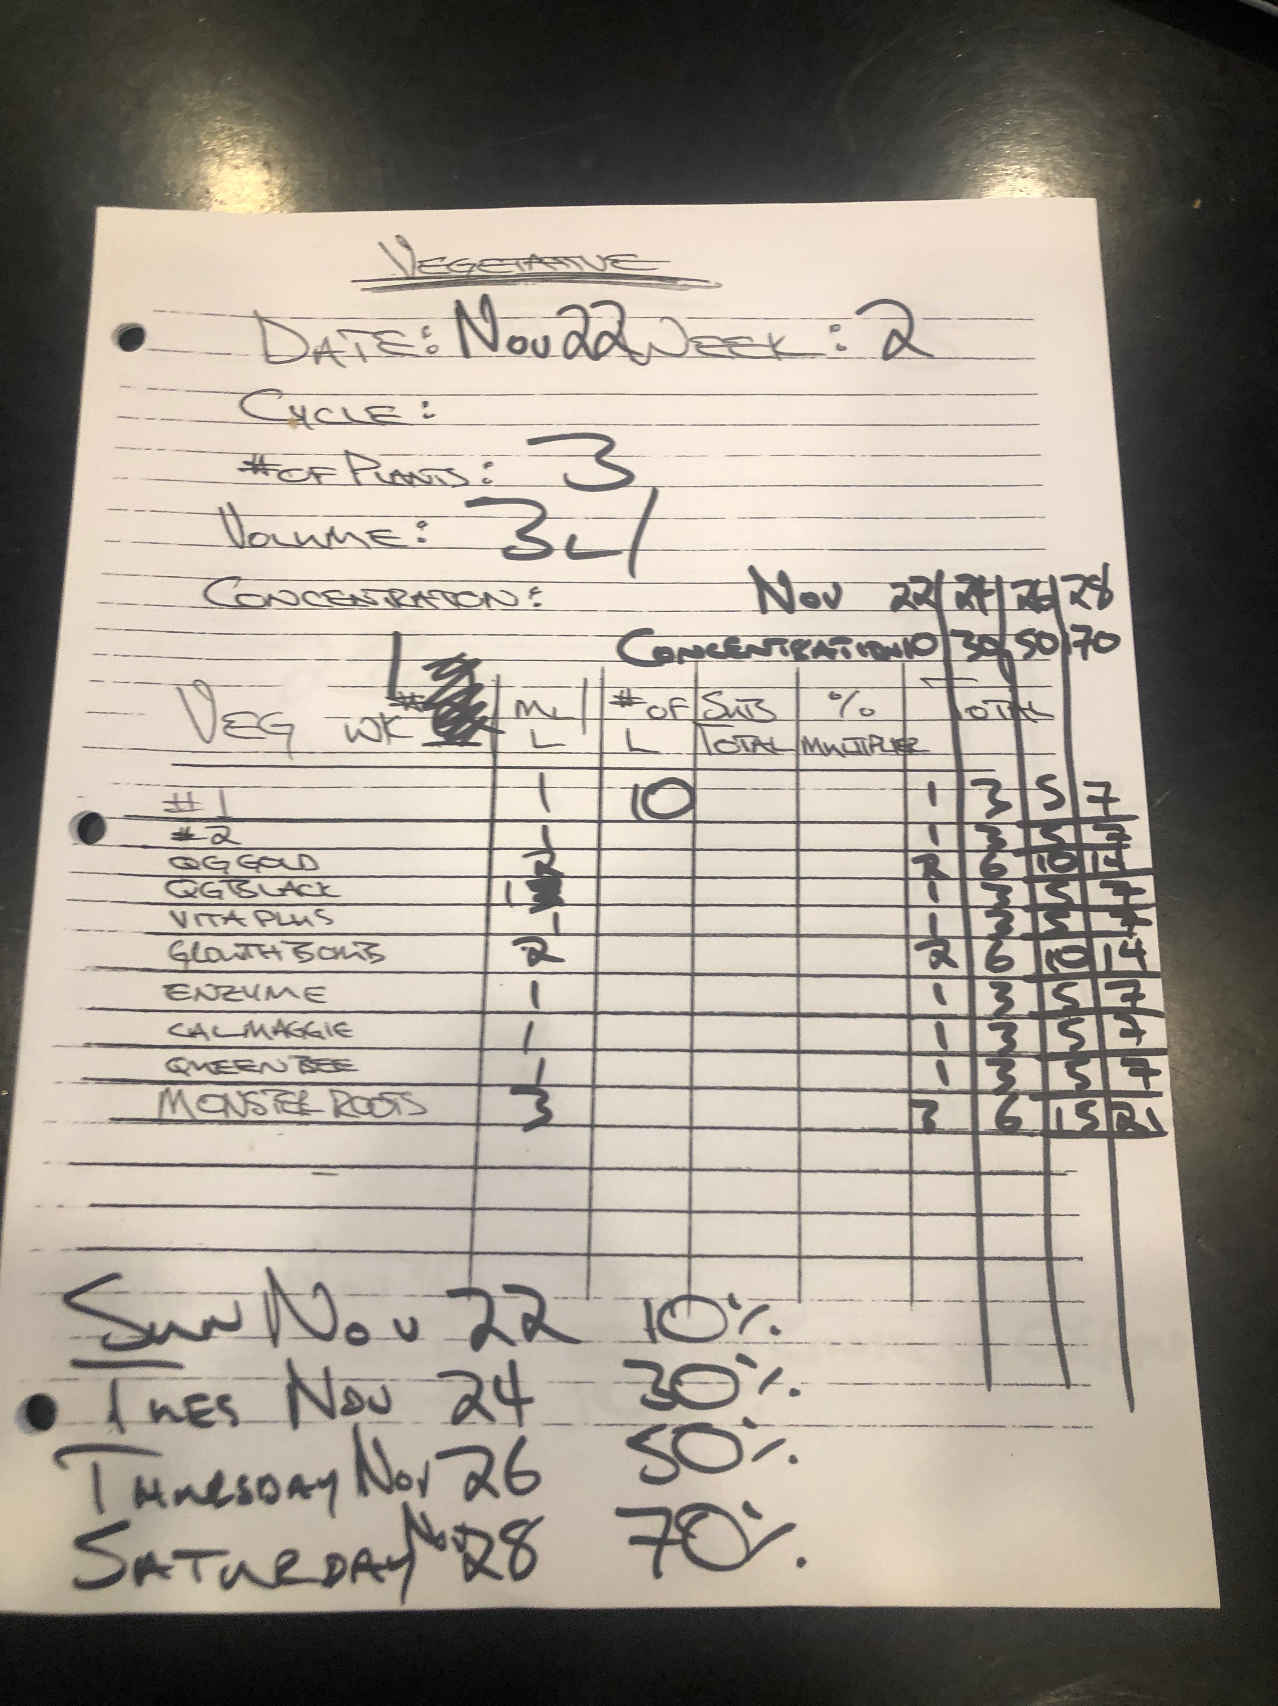 VEGETATIVE
DATE: Nov 22 WEEK: 2
CYCLE:
# OF PLANTS: 3
VOLUME: 3L
CONCENTRATION: Nov 22 24 26 28
CONCENTRATION 10 30 50 70
VEG WK # ML # OF SUB % TOTAL
L L TOTAL MULTIPLIER
#1 1 10 1 3 5 7
#2 1 1 3 5 7
QG GOLD 2 2 6 10 14
QG BLACK 1 1 3 5 7
VITA PLUS 1 1 3 5 7
GROWTH BOMB 2 2 6 10 14
ENZYME 1 1 3 5 7
CALMAGGIE 1 1 3 5 7
QUEEN BEE 1 1 3 5 7
MONSTER ROOTS 3 3 6 15 21
SUN Nov 22 10%
TUES Nov 24 30%
THURSDAY Nov 26 50%
SATURDAY Nov 28 70%